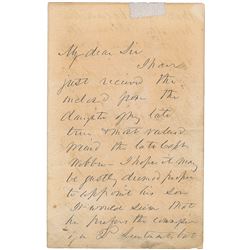 My dear Sir
I have
just received the
inclosed from the
daughter of my late
true & most valued
friend the late Capt
I hope it may
be justly deemed proper
to appoint his son
It would seem that
he prefers the
of a